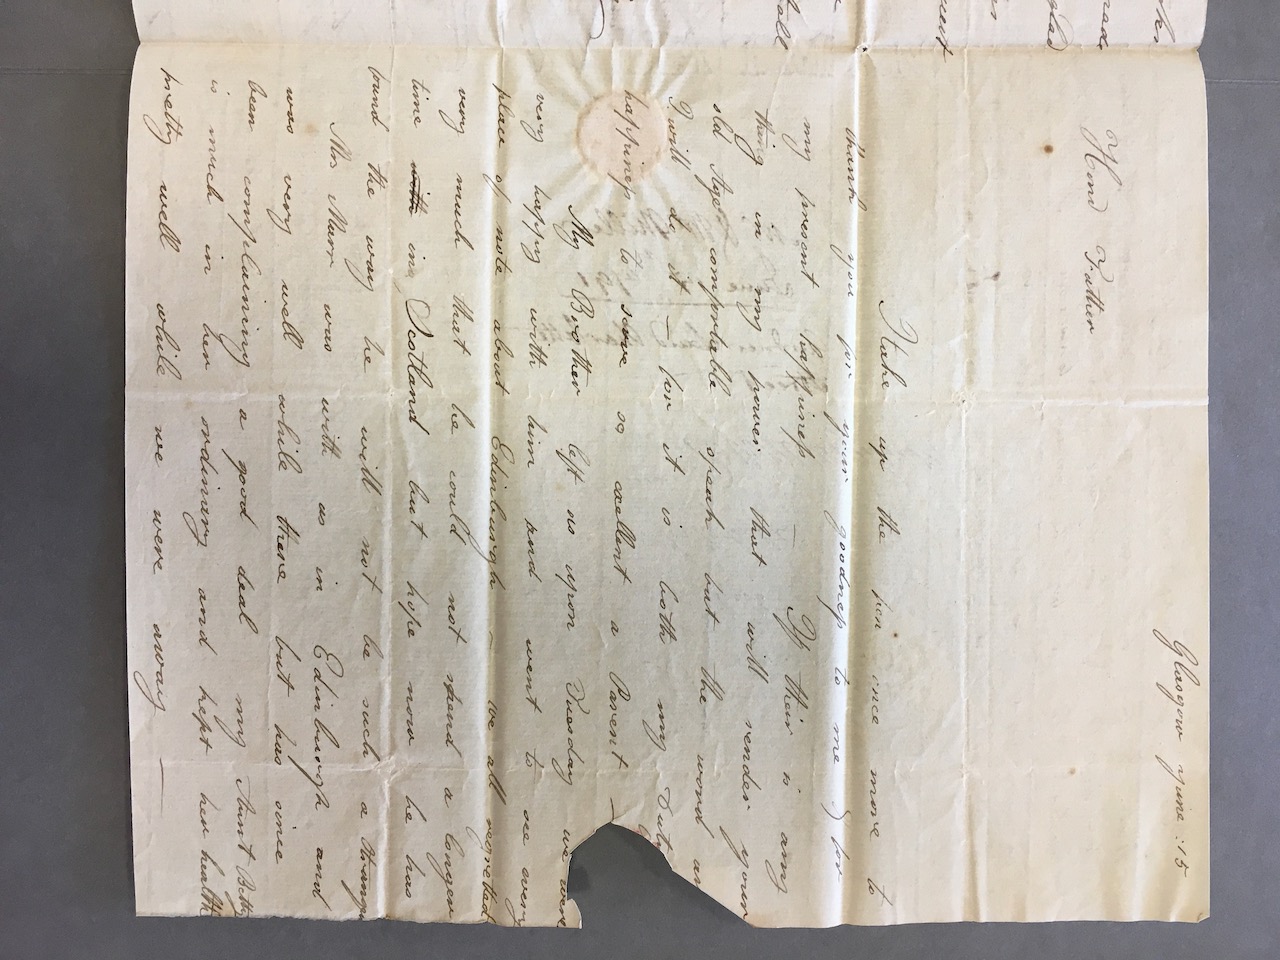 Glasgow June :15
Hond Father
I take up the pen once more to
thank you for your goodness to me & for
my present happiness — If their is any
thing in my power that will render your
old Age comfortable speak but the word and
I will do it — for it is both my Duty
happiness to serve so excellent a Parent —
My Brother left us upon Tuesday we were
very happy with him and went to see every
place of note about Edinburgh — we all regretted
very much that he could not spend a longer
time with in Scotland but hope now he has
found the way he will not be such a strang
Mrs Murr was with us in Edinburgh and
was very well while there but has since
been complaining a good deal my Aunt Betty
is much in her ordinary and kept her health
pretty well while we were away —